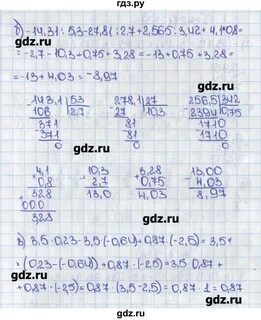 б) -14,31 : 5,3 - 27,81 : 2,7 + 2,565 : 3,42 + 4,1 · 0,8 =
= -2,7 - 10,3 + 0,75 + 3,28 = -13 + 0,75 + 3,28 =
= -13 + 4,03 = -8,97
143,1 | 53   278,1 | 27   256,5 | 342
106 | 2,7   27 | 10,3   2394 | 0,75
371   81   1710
371   81   1710
0   0   0
4,1   10,3   3,28   13,00
0,8   2,7   0,75   4,03
328   13,0   4,03   8,97
000
3,28
в) 3,5 · 0,23 - 3,5 · (-0,64) + 0,87 · (-2,5) = 3,5 ·
· (0,23 - (-0,64)) + 0,87 · (-2,5) = 3,5 · 0,87 +
+ 0,87 · (-2,5) = 0,87 · (3,5 - 2,5) = 0,87 · 1 = 0,87
gdz.ru